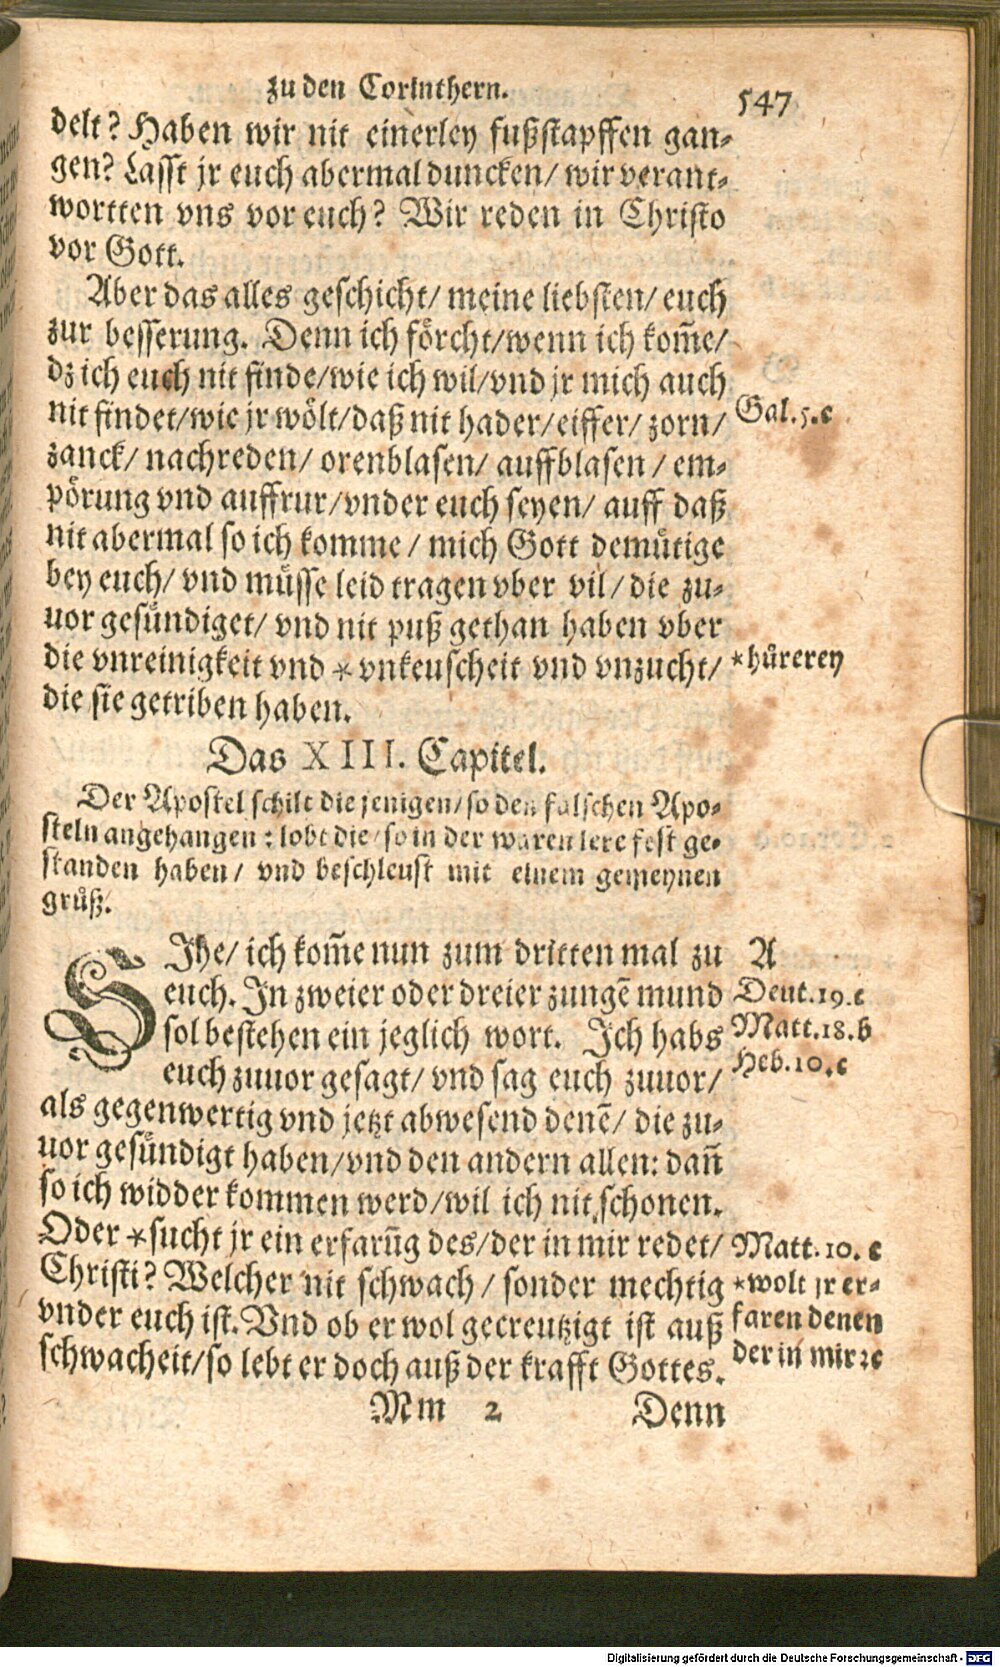 zu den Corinthern.
547
delt? Haben wir nit einerley fußstapffen gan-
gen? Lasst jr euch abermal duncken/ wir verant-
wortten vns vor euch? Wir reden in Christo
vor Gott.
Aber das alles geschicht/ meine liebsten/ euch
zur besserung. Denn ich förcht/wenn ich kom̃e/
dz ich euch nit finde/wie ich wil/vnd jr mich auch
nit findet/wie jr wölt/daß nit hader/eiffer/ zorn/
Gal.5.c
zanck/ nachreden/ orenblasen/ auffblasen / em-
pörung vnd auffrur/vnder euch seyen/ auff daß
nit abermal so ich komme / mich Gott demütige
bey euch/ vnd müsse leid tragen vber vil/ die zu-
uor gesündiget/ vnd nit puß gethan haben vber
die vnreinigkeit vnd *vnkeuscheit vnd vnzucht/
*hůrerey
die sie getriben haben.
Das XIII. Capitel.
Der Apostel schilt die jenigen/so den falschen Apo-
steln angehangen : lobt die/so in der waren lere fest ge-
standen haben/ vnd beschleust mit einem gemeynen
grůß.
SIhe/ ich kom̃e nun zum dritten mal zu
A
euch. In zweier oder dreier zungē mund
Deut.19.c
sol bestehen ein jeglich wort. Ich habs
Matt.18.b
euch zuuor gesagt/ vnd sag euch zuuor/
Heb.10.c
als gegenwertig vnd jetzt abwesend denē/ die zu-
uor gesündigt haben/vnd den andern allen: dañ
so ich widder kommen werd/wil ich nit schonen.
Oder *sucht jr ein erfarũg des/der in mir redet/
Matt.10.c
Christi? Welcher nit schwach / sonder mechtig
*wolt jr er-
vnder euch ist. Vnd ob er wol gecreutzigt ist auß
faren denen
schwacheit/so lebt er doch auß der krafft Gottes.
der in mir ꝛc
Mm 2
Denn
Digitalisierung gefördert durch die Deutsche Forschungsgemeinschaft - DFG